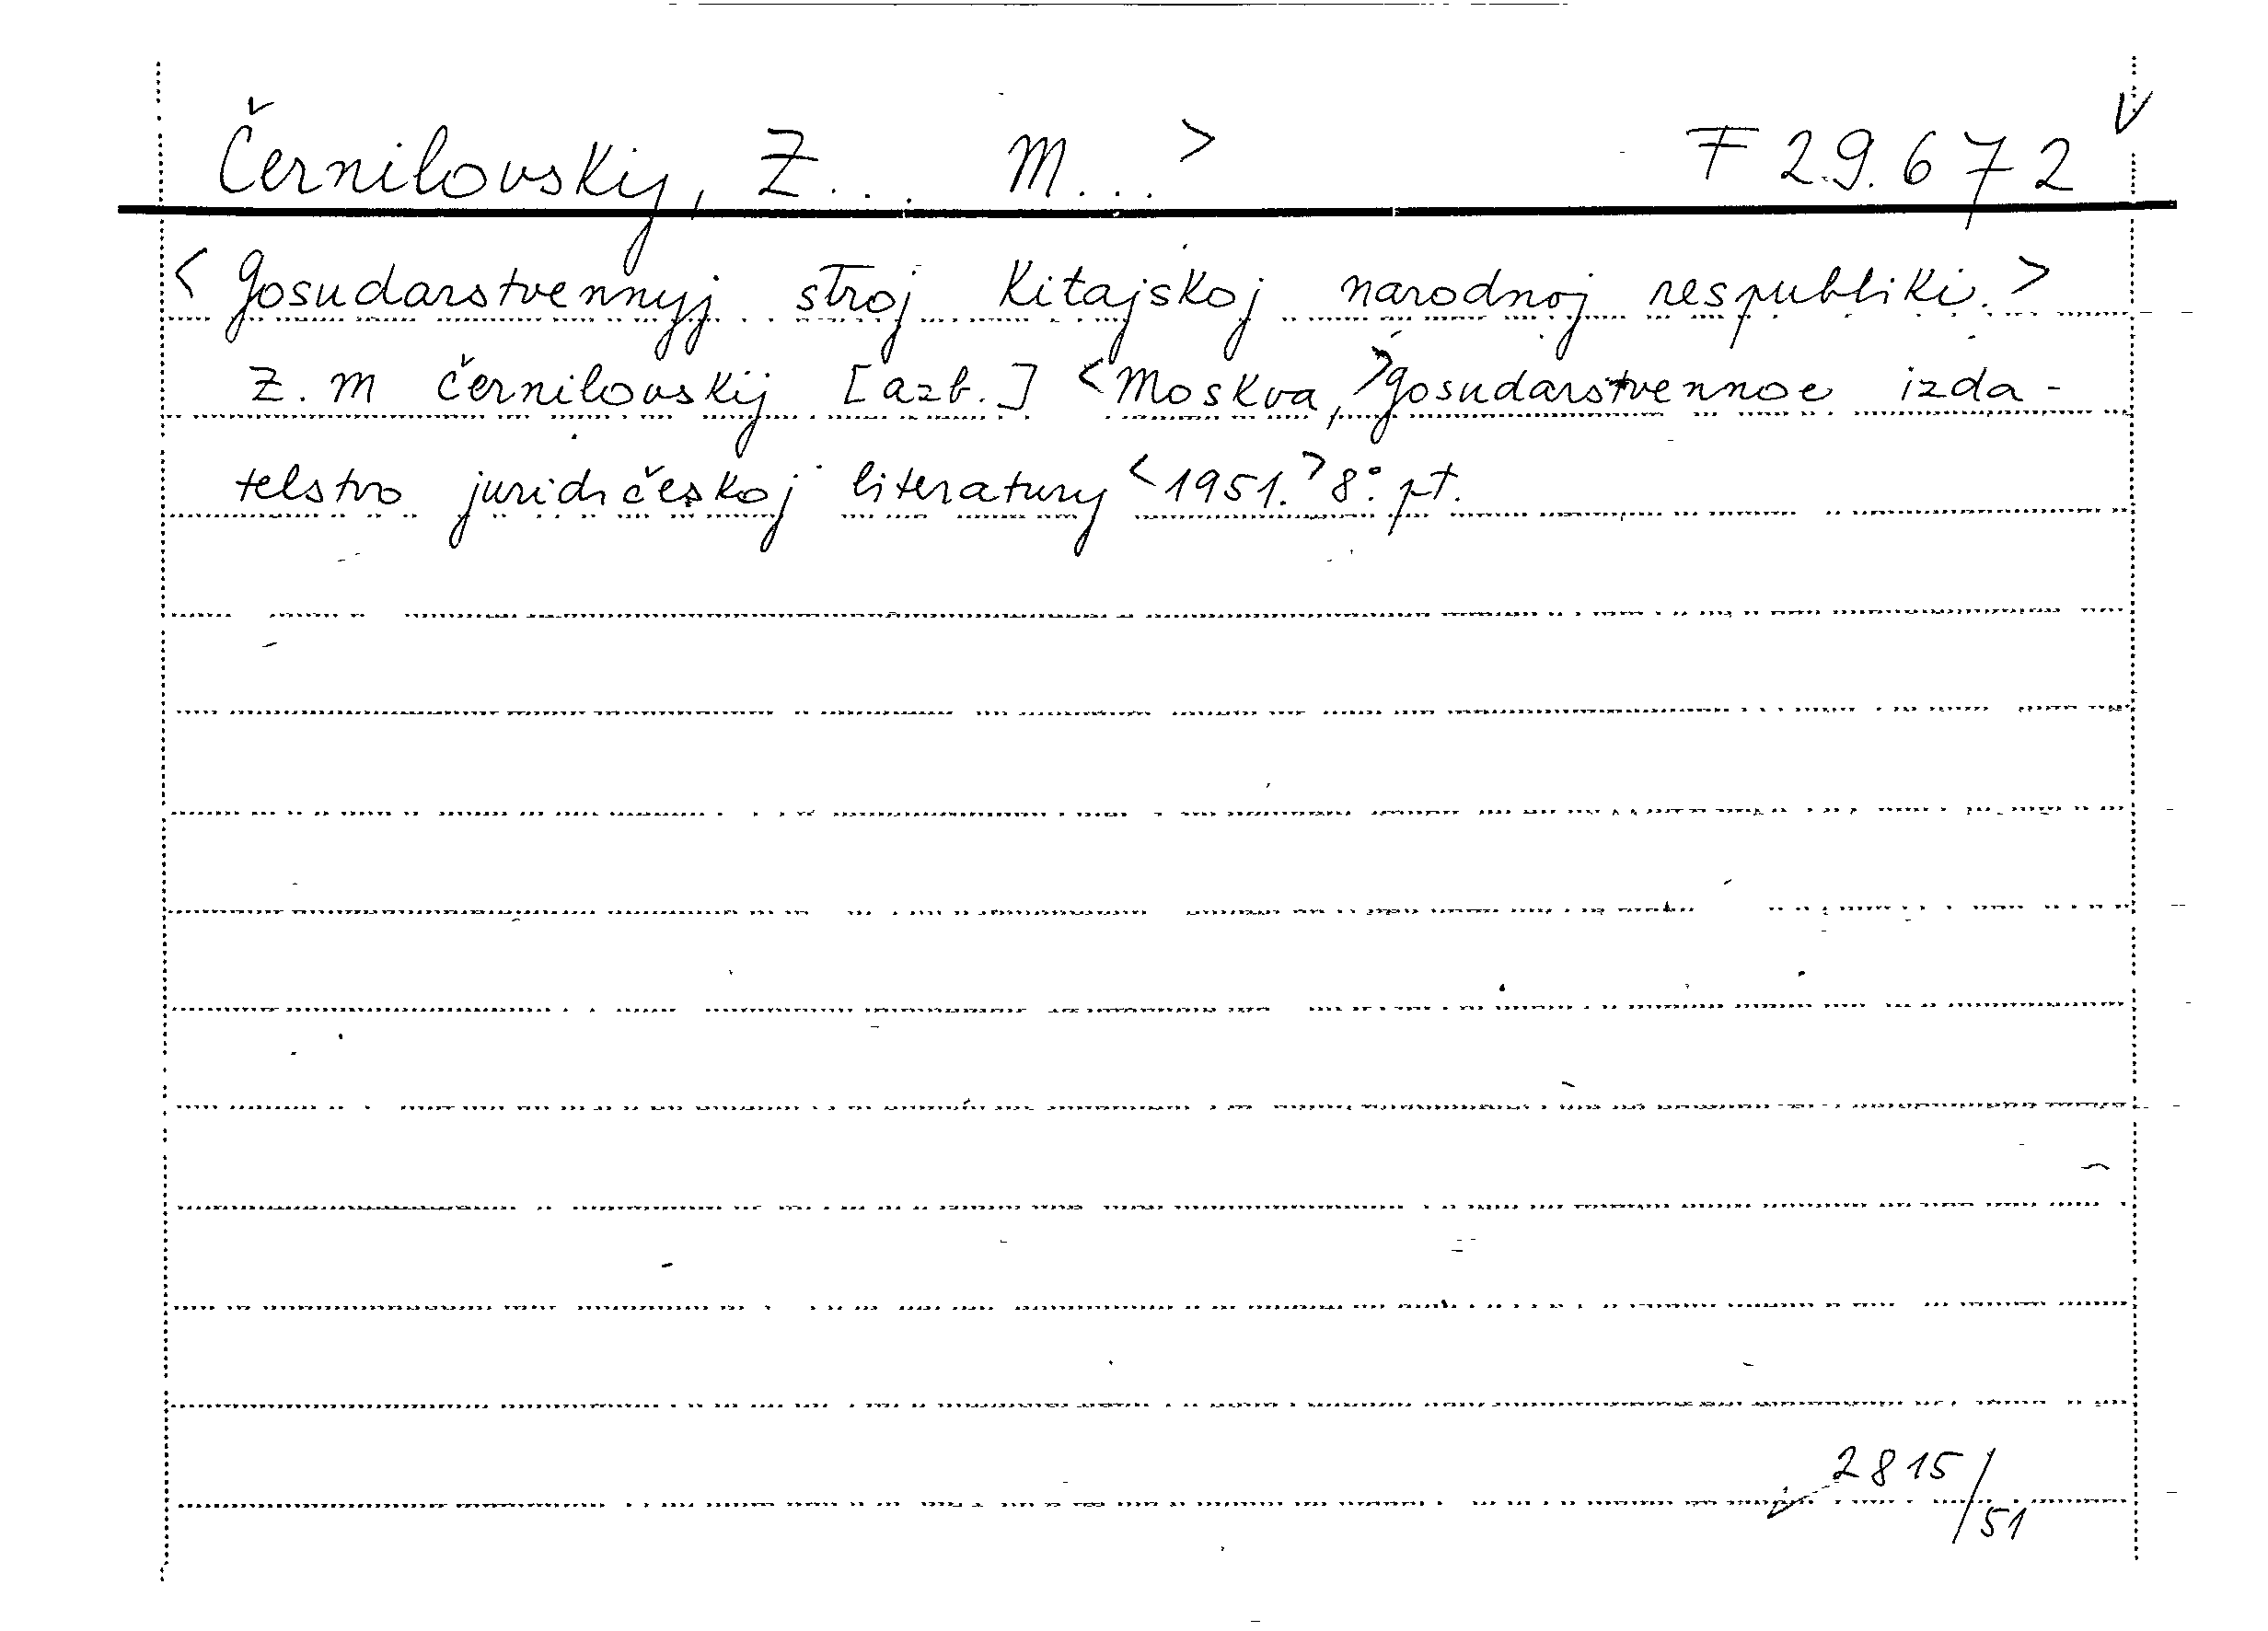 Černilovskij, Z... M...> F 29.672 V
<Gosudarstvennyj stroj Kitajskoj narodnoj respubliki.>
Z. M Černilovskij [azb.] <Moskva,> Gosudarstvennoe izda-
telstvo juridičeskoj literatury <1951.> 8° pt.
2815/51